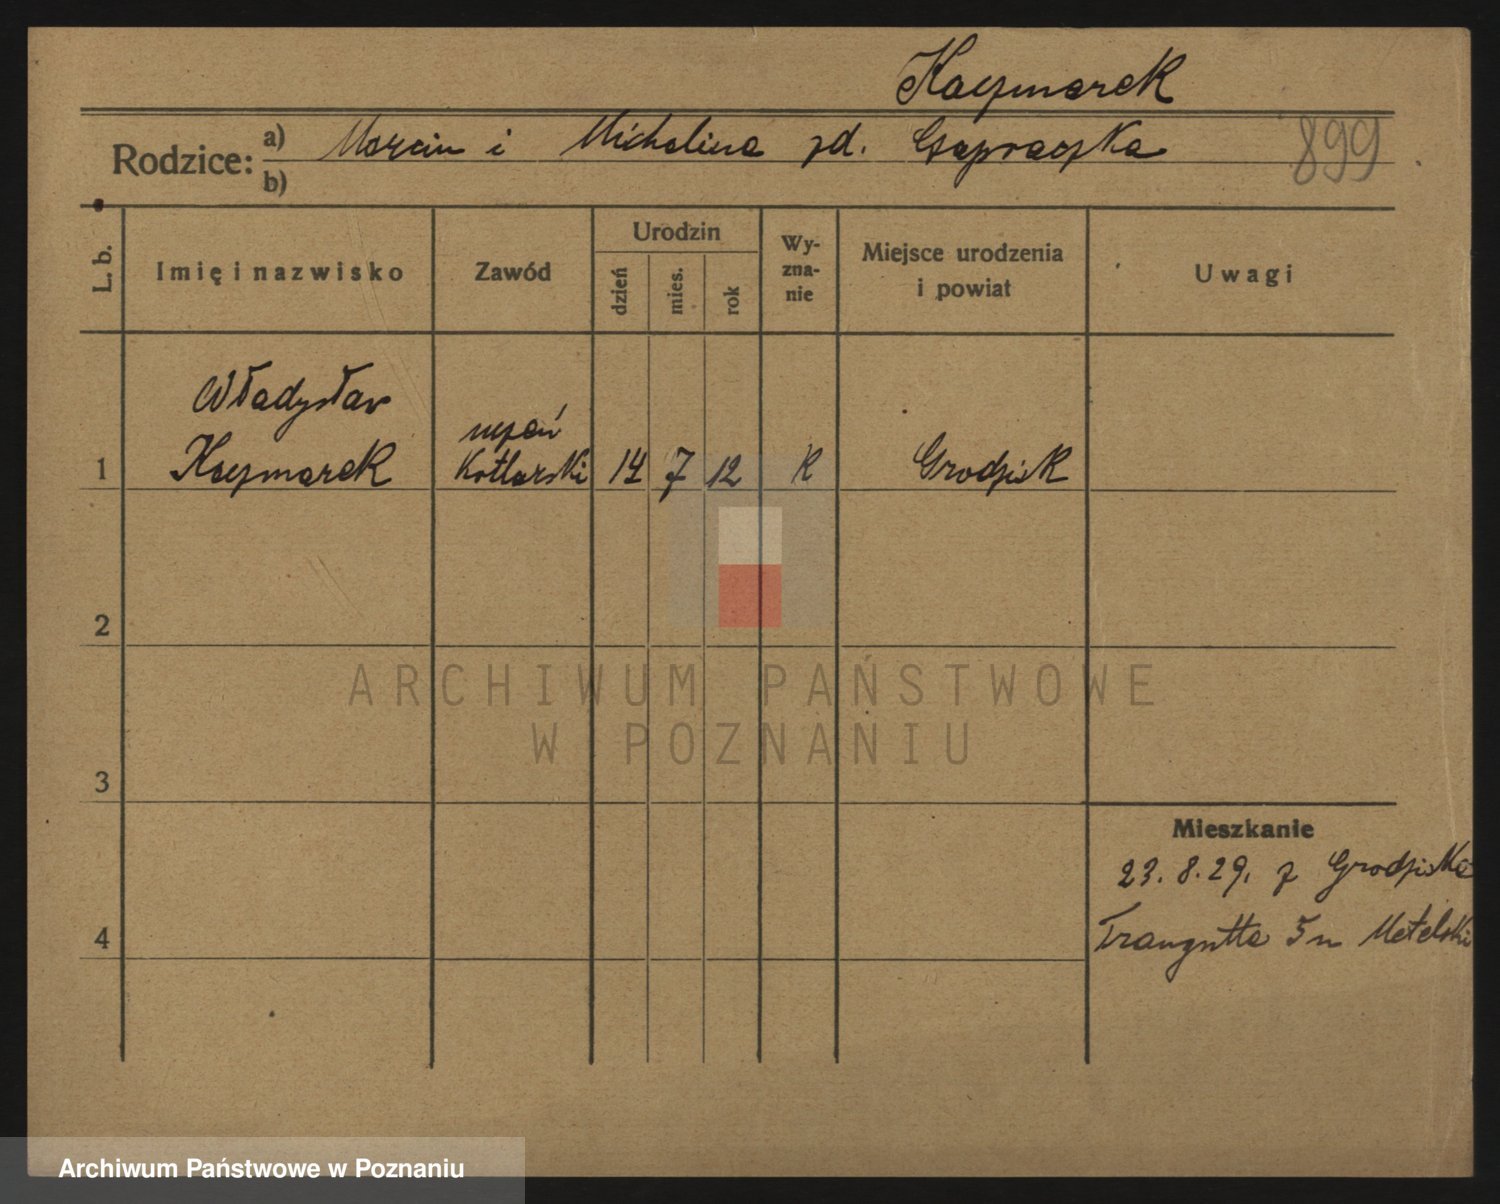 Kaczmarek
Rodzice: a) Marcin i Michalina zd. 899
b)
L. b. Imię i nazwisko Zawód Urodzin dzień mies. rok Wyznanie Miejsce urodzenia i powiat Uwagi
Władysław
1 Kaczmarek uczeń Kotlarski 14 7 12 R Grodzisk
2
3
4
Mieszkanie
23. 8. 29. z Grodziska
Traugutta 5 u Metelski
ARCHIWUM PAŃSTWOWE
W POZNANIU
Archiwum Państwowe w Poznaniu